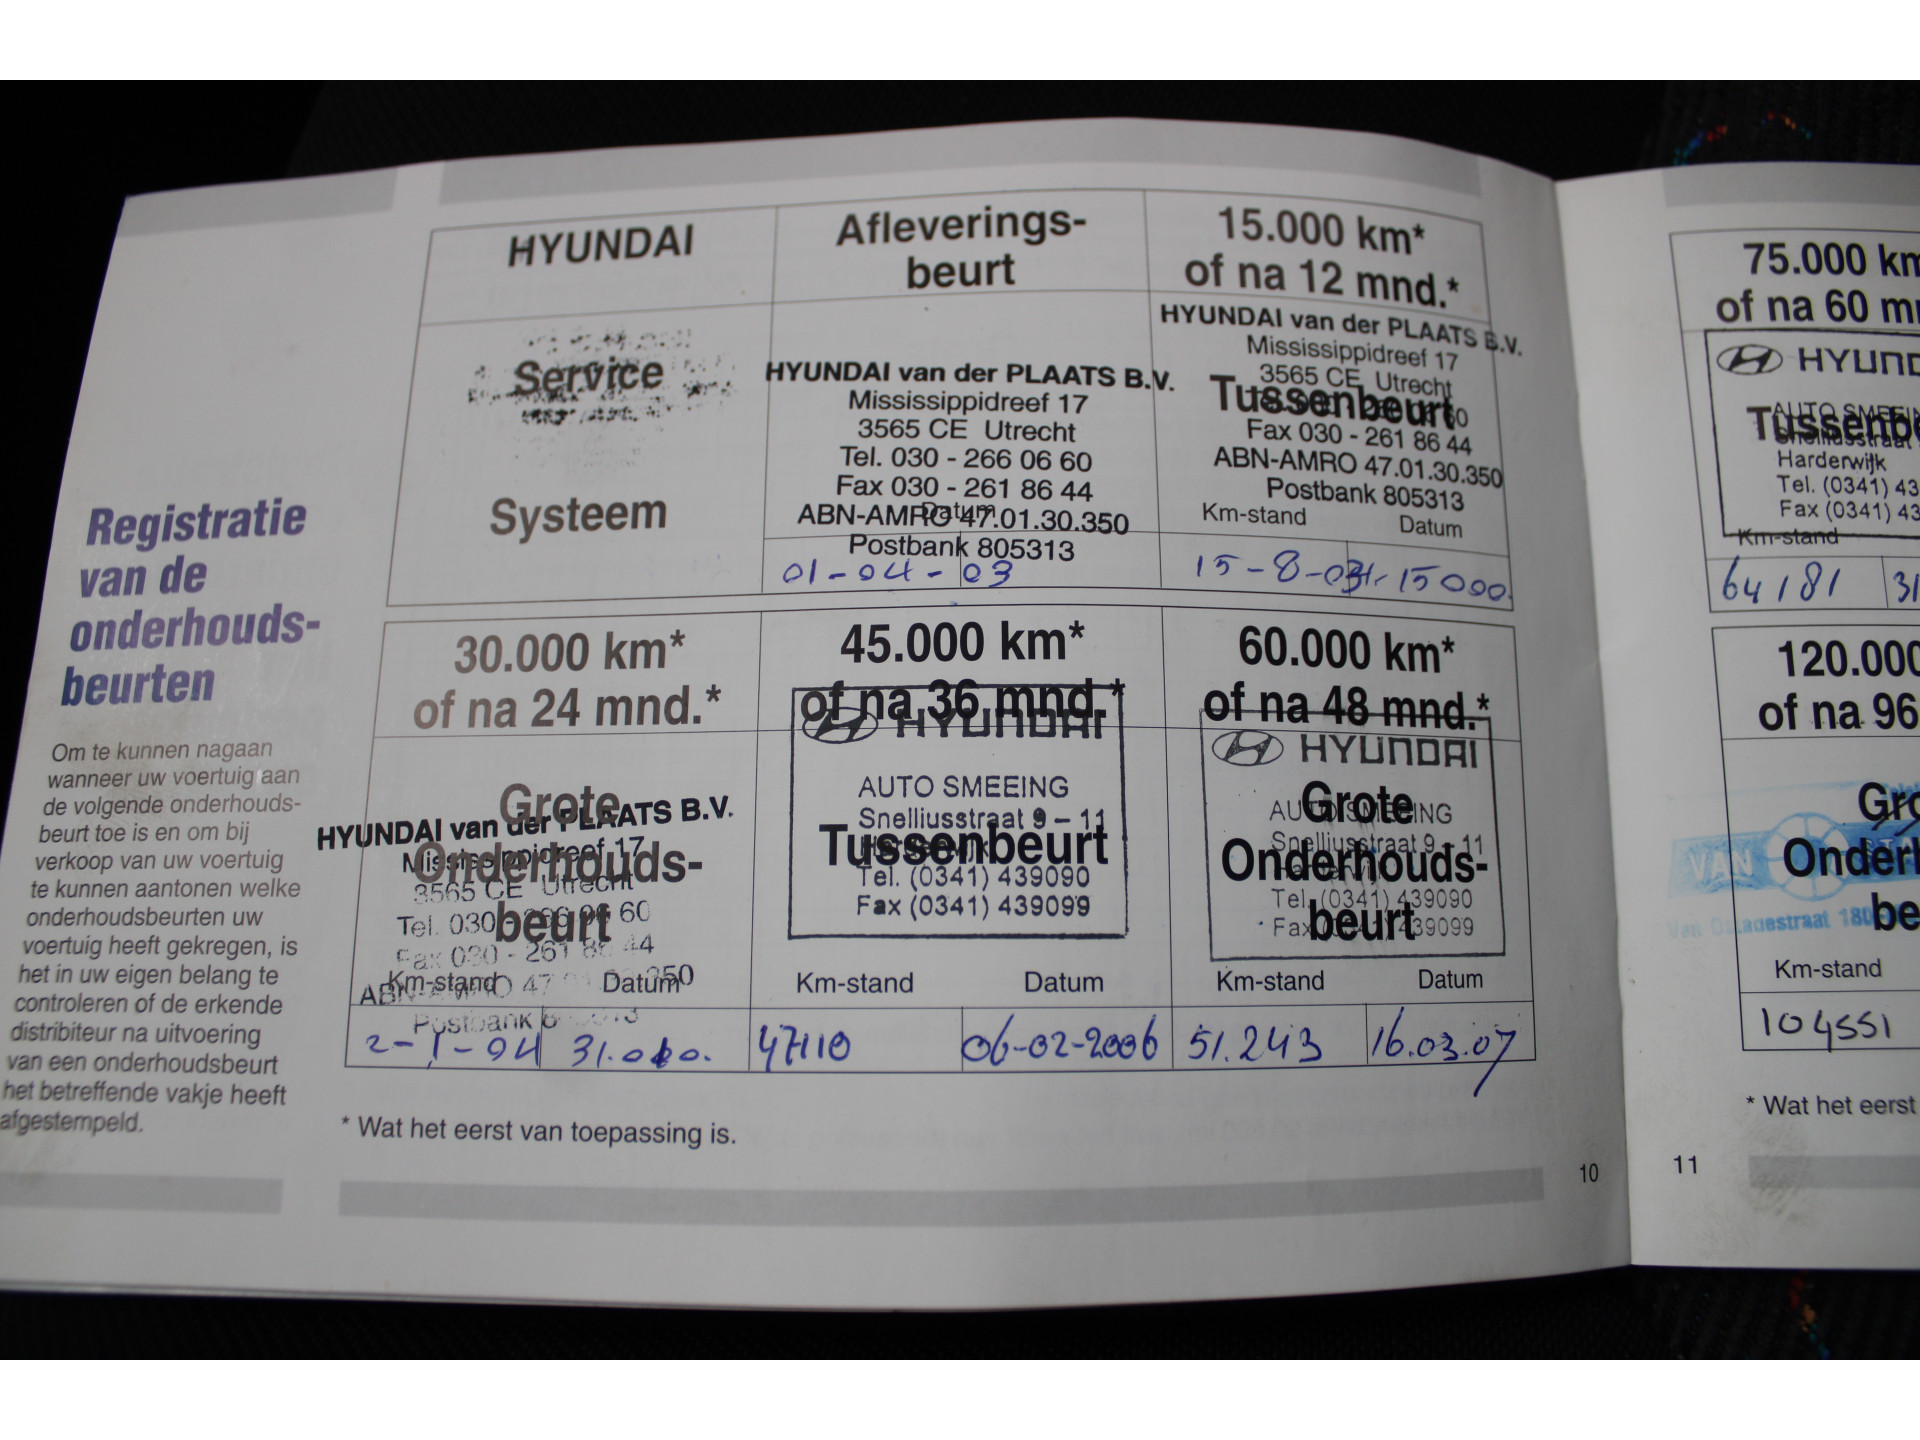 Registratie
van de
onderhouds-
beurten
Om te kunnen nagaan
wanneer uw voertuig aan
de volgende onderhouds-
beurt toe is en om bij
verkoop van uw voertuig
te kunnen aantonen welke
onderhoudsbeurten uw
voertuig heeft gekregen, is
het in uw eigen belang te
controleren of de erkende
distribiteur na uitvoering
van een onderhoudsbeurt
het betreffende vakje heeft
afgestempeld.
HYUNDAI
Service
Systeem
Afleverings-
beurt
HYUNDAI van der PLAATS B.V.
Mississippidreef 17
3565 CE Utrecht
Tel. 030 - 266 06 60
Fax 030 - 261 86 44
Datum
ABN-AMRO 47.01.30.350
Postbank 805313
01-04-03
15.000 km*
of na 12 mnd.*
HYUNDAI van der PLAATS B.V.
Mississippidreef 17
3565 CE Utrecht
Tussenbeurt
Fax 030 - 261 86 44
ABN-AMRO 47.01.30.350
Postbank 805313
Km-stand Datum
15-8-03 15000.
30.000 km*
of na 24 mnd.*
Grote
HYUNDAI van der PLAATS B.V.
Mississippidreef 17
Onderhouds-
3565 CE Utrecht
Tel. 030 - 266 06 60
beurt
Fax 030 - 261 86 44
Km-stand Datum
ABN-AMRO 47 350
Postbank
2-1-04 31.000.
45.000 km*
of na 36 mnd.*
HYUNDAI
AUTO SMEEING
Snelliusstraat 9 – 11
Tussenbeurt
Tel. (0341) 439090
Fax (0341) 439099
Km-stand Datum
47110 06-02-2006
60.000 km*
of na 48 mnd.*
HYUNDAI
Grote
AUTO SMEEING
Snelliusstraat 9 - 11
Onderhouds-
Harderwijk
Tel. (0341) 439090
beurt
Fax (0341) 439099
Km-stand Datum
51.243 16.03.07
* Wat het eerst van toepassing is.
10
75.000 km
of na 60
HYUND
AUTO SMEEIN
Tussenb
Snelliusstraat
Harderwijk
Tel. (0341) 43
Fax (0341) 43
Km-stand
64181 31
120.000
of na 96
Gro
VAN
Onderh
be
Km-stand
104551
* Wat het eerst
11